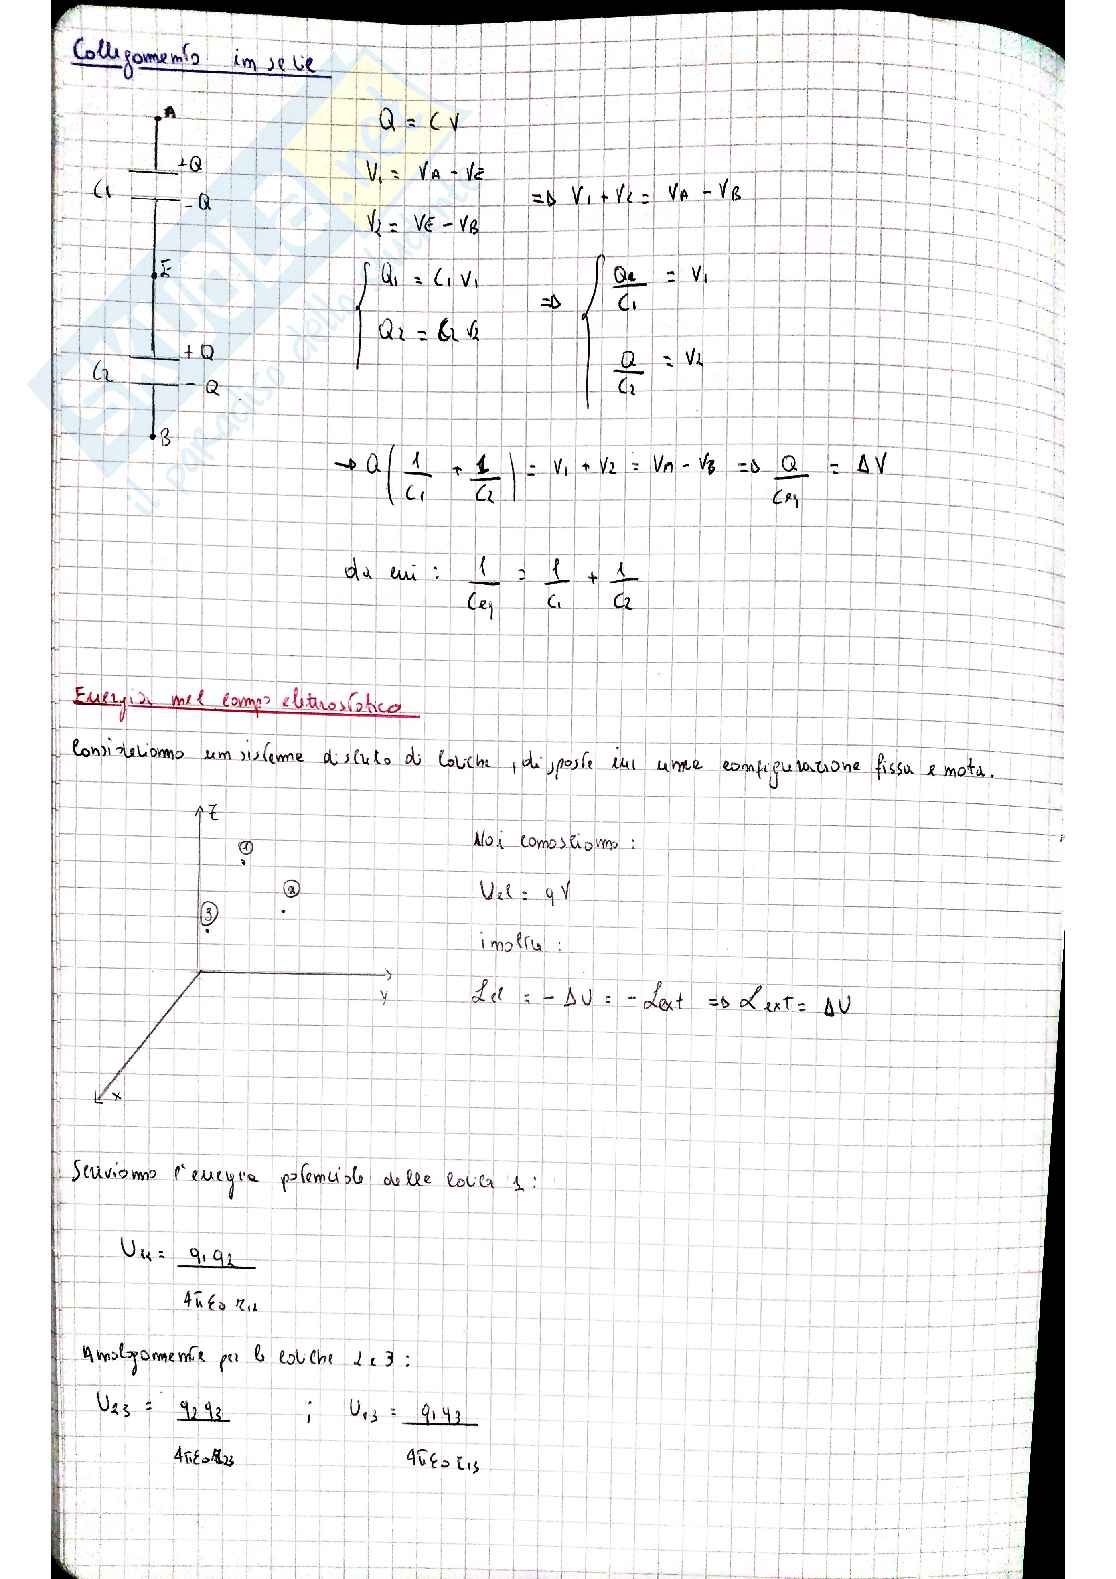 Collegamento in serie
A
+Q
C1
-Q
E
+Q
C2
-Q
B
Q = CV
V1 = VA - VE
V2 = VE - VB
=> V1 + V2 = VA - VB
Q1 = C1 V1
Q2 = C2 V2
=>
Q/C1 = V1
Q/C2 = V2
→ Q(1/C1 + 1/C2) = V1 + V2 = VA - VB => Q/Ceq = ΔV
da cui : 1/Ceq = 1/C1 + 1/C2
Energia nel campo elettrostatico
Consideriamo un sistema discreto di cariche, disposte in una configurazione fissa e nota.
z
1
2
3
y
x
Noi conosciamo :
Uel = qV
inoltre :
Lel = - ΔU = - Lext => Lext = ΔU
Scriviamo l'energia potenziale della carica 1 :
U12 = q1q2 / 4πε0 r12
Analogamente per le cariche 2 e 3 :
U23 = q2q3 / 4πε0 r23 ; U13 = q1q3 / 4πε0 r13
SKUOLA.net
il paradiso dello studente